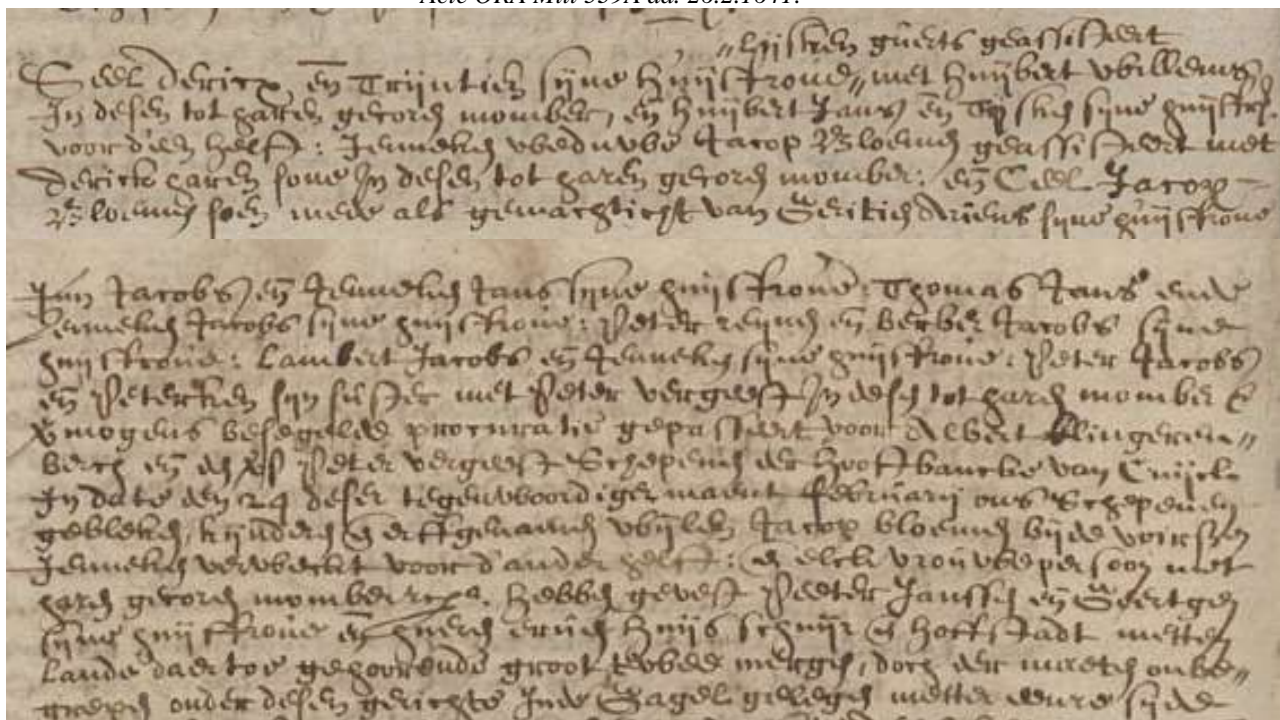 Acte ORA Mill 339A dd. 26.2.1641.
"Lijsken guerts geassisteert
Ceel Dericx, en Trijntien sijne huijsfroue "met huijbert Willems
In desen tot haren gecoren momber, en huijbert Jans en sijne huijsfr.
voor d'een helft: Jenneken weduwe Jacop Bloemen geassisteert met
Derick haren sone In desen tot haren gecoren momber: en Ceel Jacop
Bloemen soen mede als gemachticht van Geritien Ariens sijne huijsfroue
Jan Jacobs en Jenneken Jans sijne huijsfroue: Thomas Jans ende
Jenneken Jacobs sijne huijsfroue: Peter reijnen en Berber Jacobs sijne
huijsfroue: Lambert Jacobs en Jenneken sijne huijsfroue: Peter Jacobs
en Peterken sijn suster met Peter vergeest In desen tot haren momber
vermogens besegelde procuratie gepasseert voor Albert Clingeren"
berch en Peter vergeest Schepenen der hooftbancke van Cuijck
In date den 24 deser tegenwoordiger maent february ons Schepenen
gebleken, kijnderen en erffgenamen wijlen Jacop bloemen bijde voirsz
Jenneken verweckt voor d'ander helft: en elck vrouwepersoon met
haren gecoren momber, hebben gevest Peeter Janssen en Geertgen
sijne huijsfroue en huijs schuijr en hoffstadt metten
Lande daer toe gehoorende groot twee mergen, doch der maeten onbe"
grepen onder desen gerichte Inde Hagel gelegen metter eenre sijde